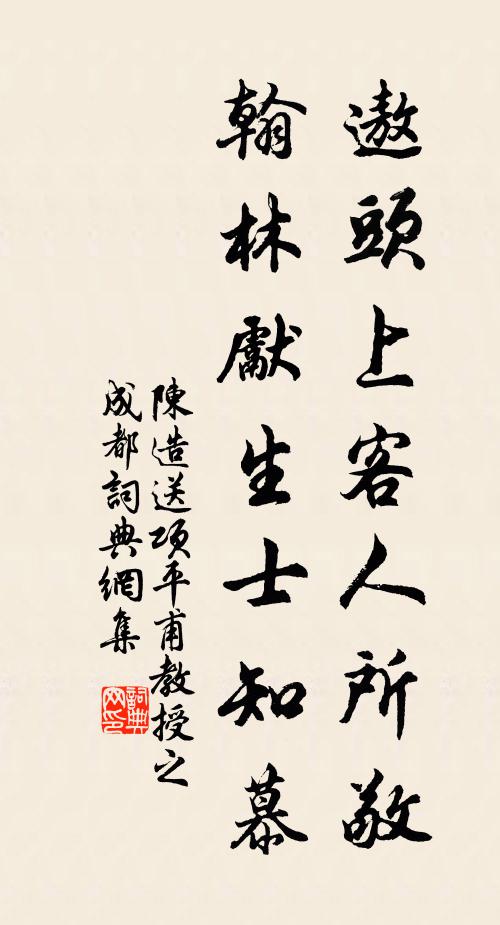 遨頭上客人所敬
翰林獻生士知慕
陳造送項平甫教授之
成都詞典網集
詞典
网印